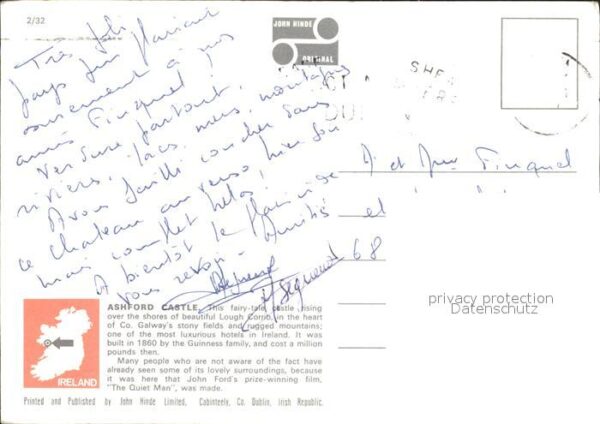 2/32
JOHN HINDE
ORIGINAL
SHE
Très joli
pays
à nos
amis Finquel !
Verdure partout,
rivières, lacs, mers, montagnes
Avons failli coucher dans
ce chateau au verso, hier soir
mais complet hélas !
A bientôt le plaisir de
vous revoir. Amitiés et
68
M et Mme Finquel
privacy protection
Datenschutz
ASHFORD CASTLE. This fairy-tale castle rising
over the shores of beautiful Lough Corrib, in the heart
of Co. Galway's stony fields and rugged mountains;
one of the most luxurious hotels in Ireland. It was
built in 1860 by the Guinness family, and cost a million
pounds then.
Many people who are not aware of the fact have
already seen some of its lovely surroundings, because
it was here that John Ford's prize-winning film,
"The Quiet Man", was made.
IRELAND
Printed and Published by John Hinde Limited, Cabinteely, Co. Dublin, Irish Republic.